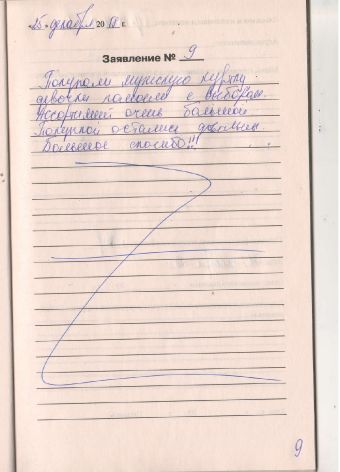 25 декабря 20 11 г.
Заявление № 9
Покупали мужскую куртку.
девочки помогли с выбором.
Ассортимент очень большой
Покупкой остались довольны.
Большое спасибо!!!
9